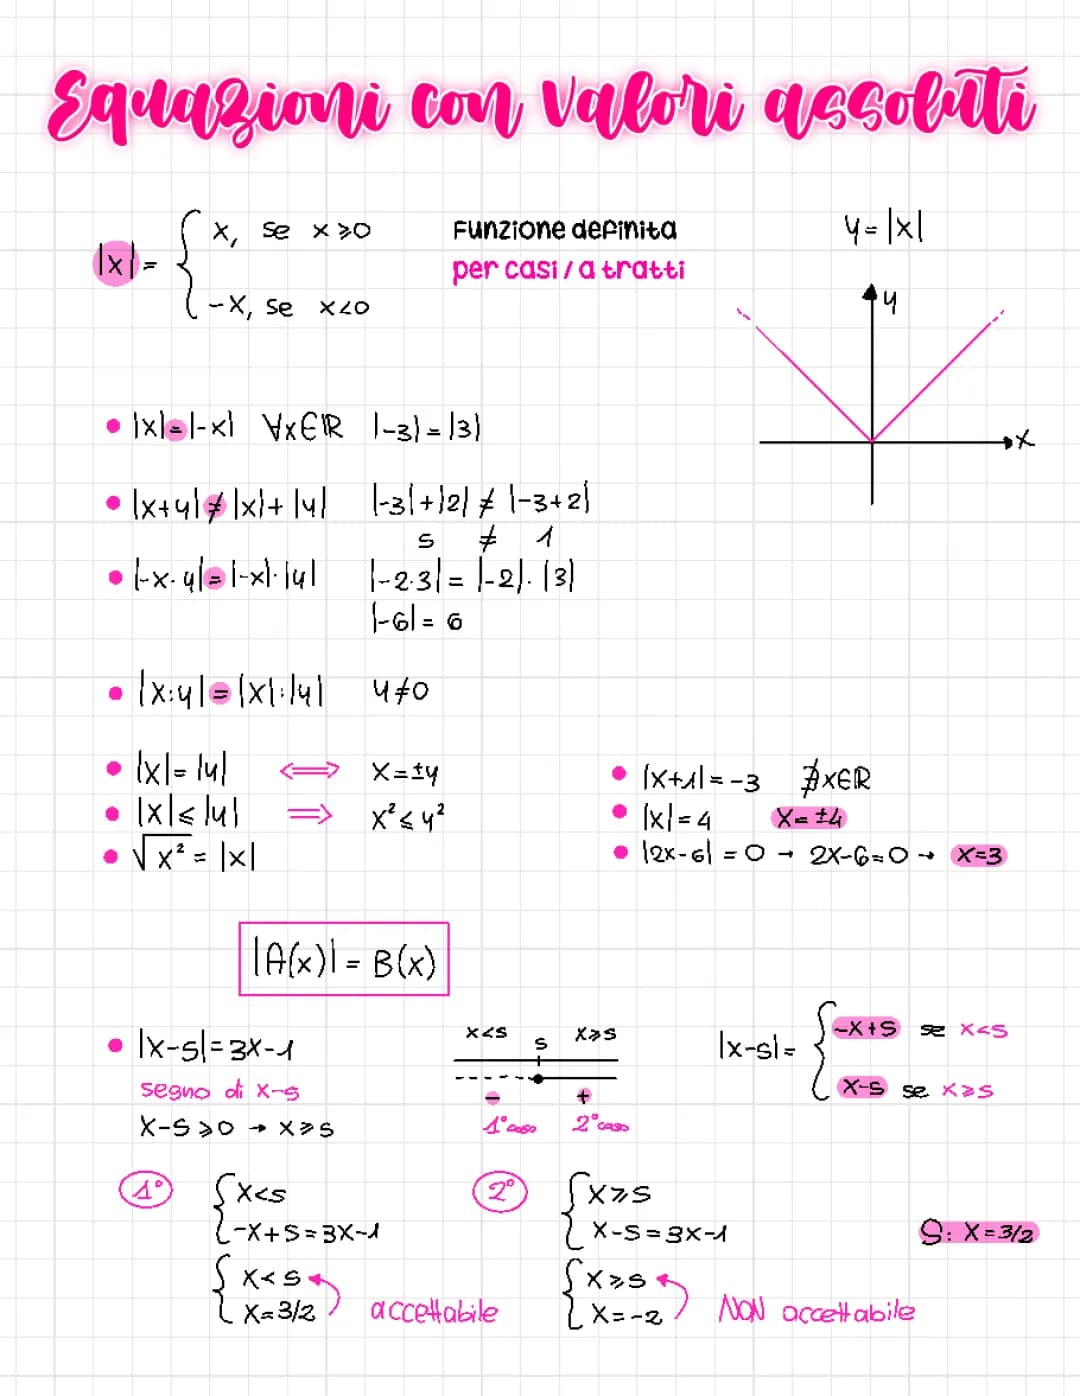 Equazioni con valori assoluti
|x| = { x, se x ⩾ 0
-x, se x < 0
Funzione definita
per casi / a tratti
y = |x|
y
x
• |x| = |-x| ∀x∈ℝ |-3| = |3|
• |x+y| ≠ |x| + |y| |-3| + |2| ≠ |-3+2|
5 ≠ 1
• |-x·y| = |-x|·|y| |-2·3| = |-2|·|3|
|-6| = 6
• |x:y| = |x|:|y| y≠0
• |x| = |y| ⟺ x = ±y
• |x| ⩽ |y| ⟹ x² ⩽ y²
• √x² = |x|
• |x+1| = -3 ∄x∈ℝ
• |x| = 4 x = ±4
• |2x-6| = 0 → 2x-6=0 → x=3
|A(x)| = B(x)
• |x-5| = 3x-1
segno di x-5
x-5 ⩾ 0 → x ⩾ 5
x<5 5 x⩾5
- +
1° caso 2° caso
|x-5| = { -x+5 se x<5
x-5 se x⩾5
1° { x<5
-x+5 = 3x-1
{ x<5
x = 3/2 accettabile
2° { x⩾5
x-5 = 3x-1
{ x⩾5
x = -2 NON accettabile
S: x = 3/2